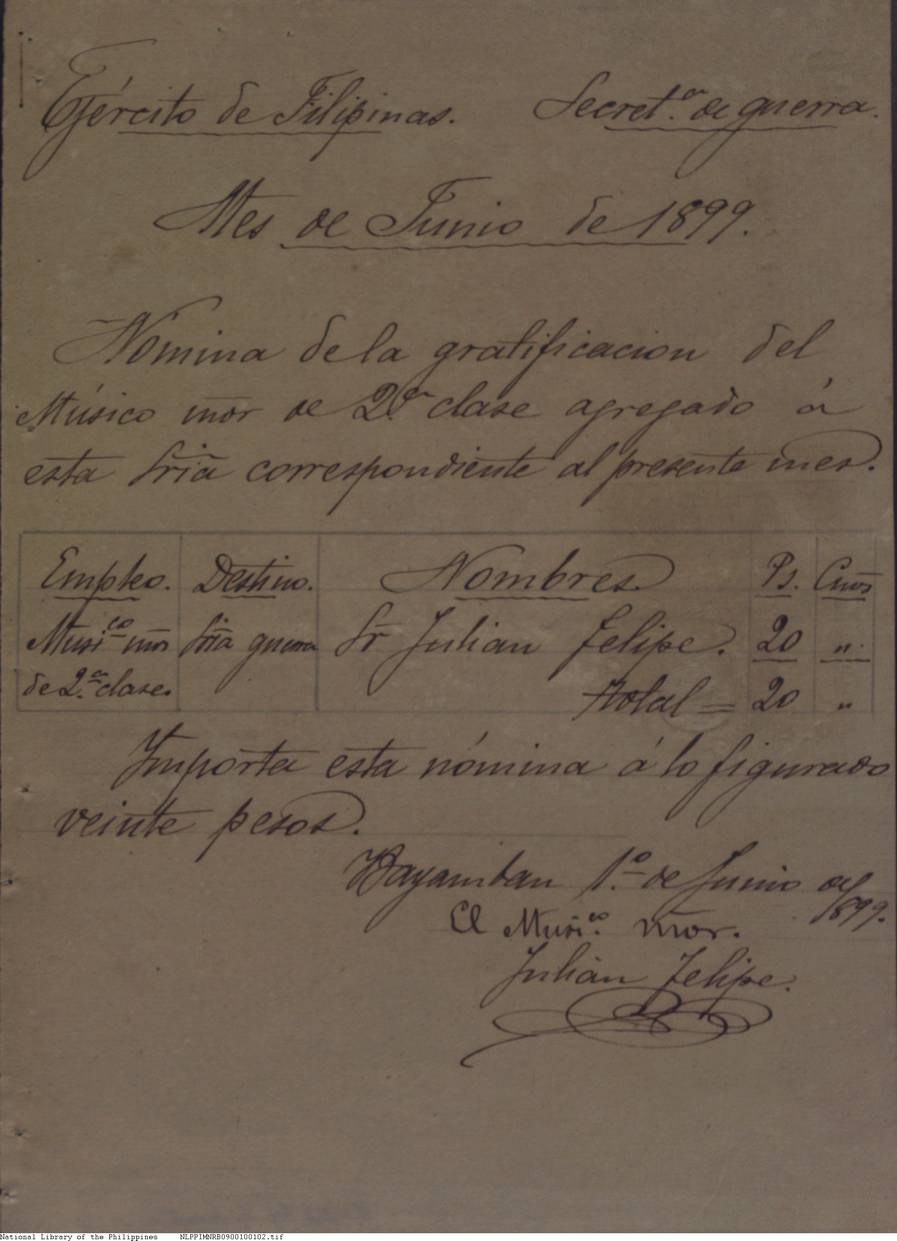 Ejército de Filipinas. Secret.ª de guerra.
Mes de Junio de 1899.
Nómina de la gratificacion del
Músico mor de 2.ª clase agregado á
esta Sría correspondiente al presente mes.
Empleo. Destino. Nombres. Ps. Cmos
Musi.co mor Sría guerra Sr Julian Felipe. 20 "
de 2.ª clase.
total = 20 "
Importa esta nómina á lo figurado
veinte pesos.
Bayamban 1.º de Junio de
1899.
El Musi.co mor.
Julian Felipe.
National Library of the Philippines NLPPIMNRB0900100102.tif